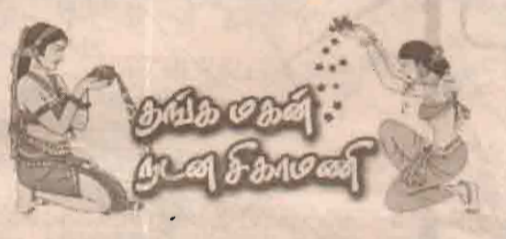 தங்க மகன்
நடன சிகாமணி